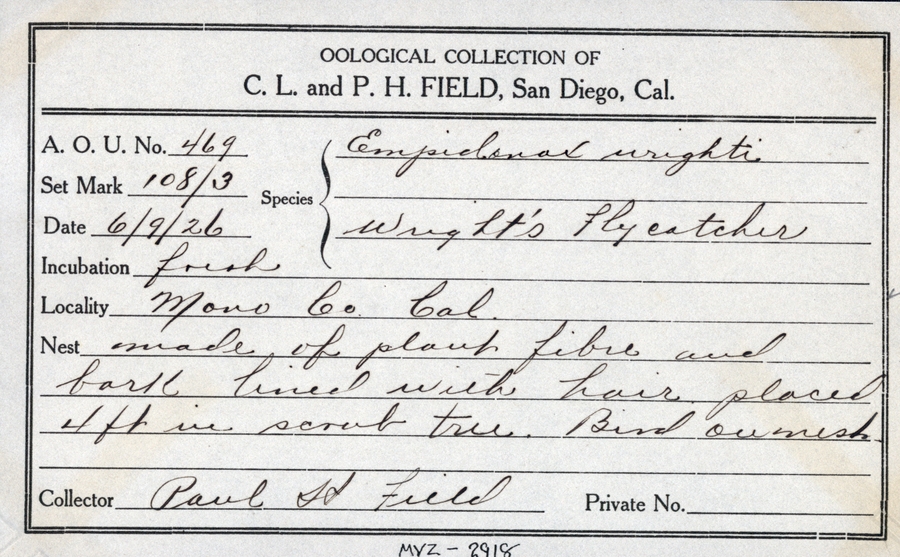 OOLOGICAL COLLECTION OF
C. L. and P. H. FIELD, San Diego, Cal.
A. O. U. No. 469
Empidonax wrighti
Set Mark 108/3
Species
Date 6/9/26
Wright's Flycatcher
Incubation fresh
Locality Mono Co. Cal.
Nest made of plant fibre and
bark lined with hair. placed
4 ft in scrub tree. Bird on nest.
Collector Paul H Field Private No.
MVZ - 2918